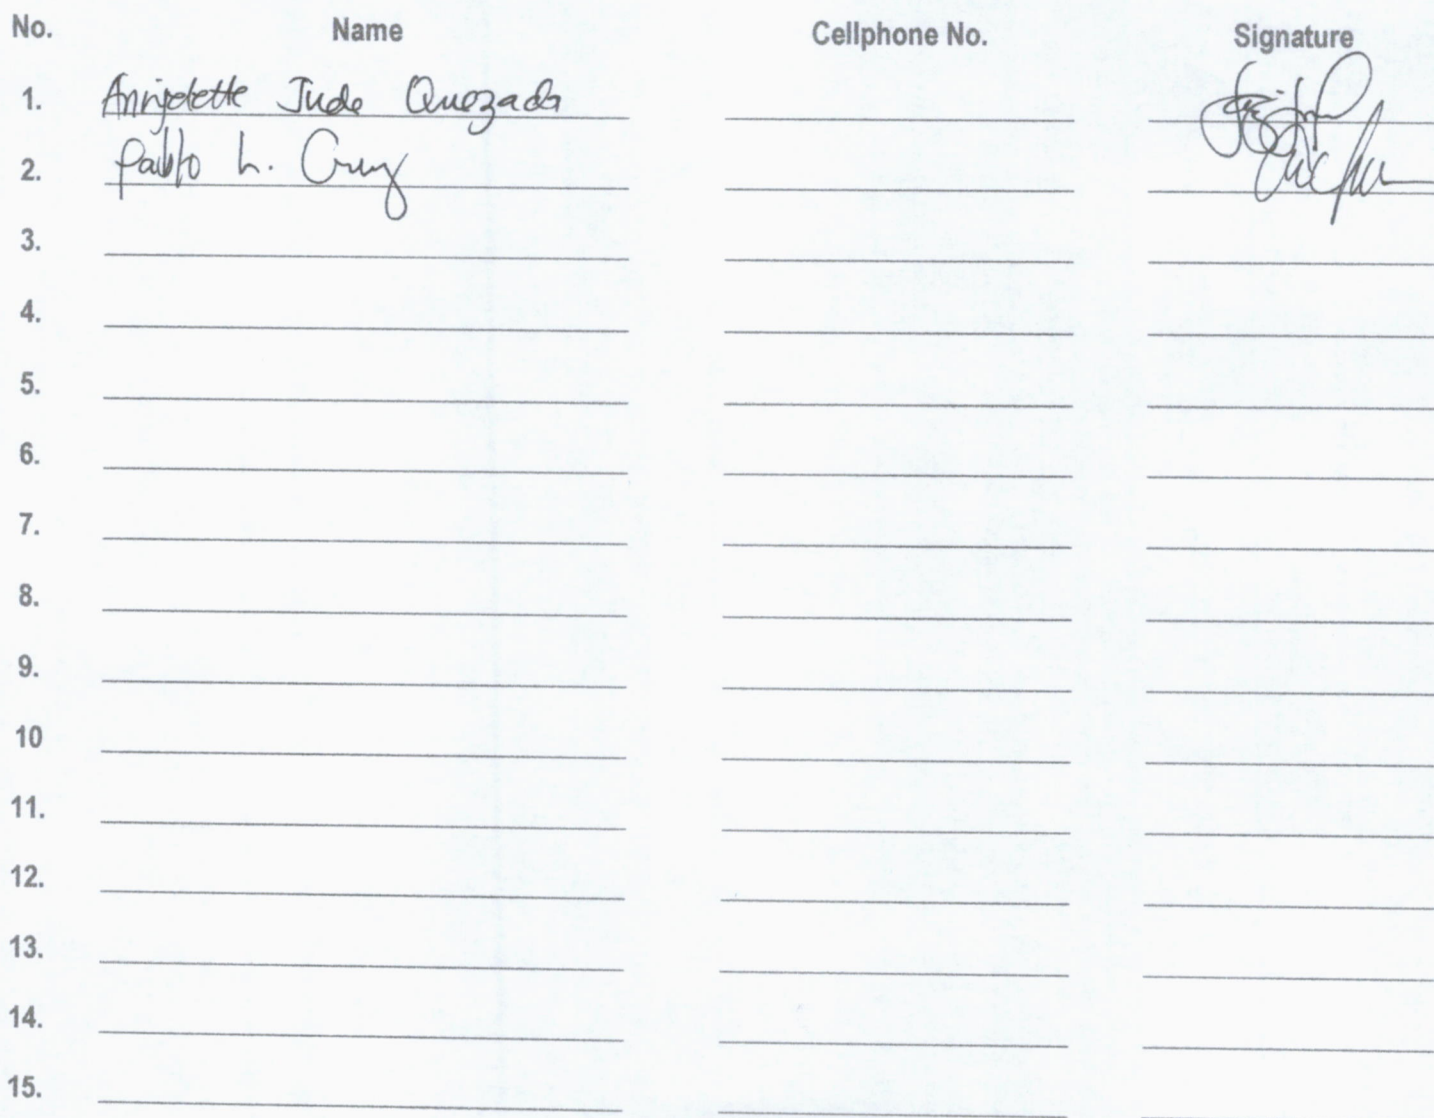 No. Name Cellphone No. Signature
1. Annjelette Jude Quezada
2. Pablo L. Cruz
3.
4.
5.
6.
7.
8.
9.
10
11.
12.
13.
14.
15.